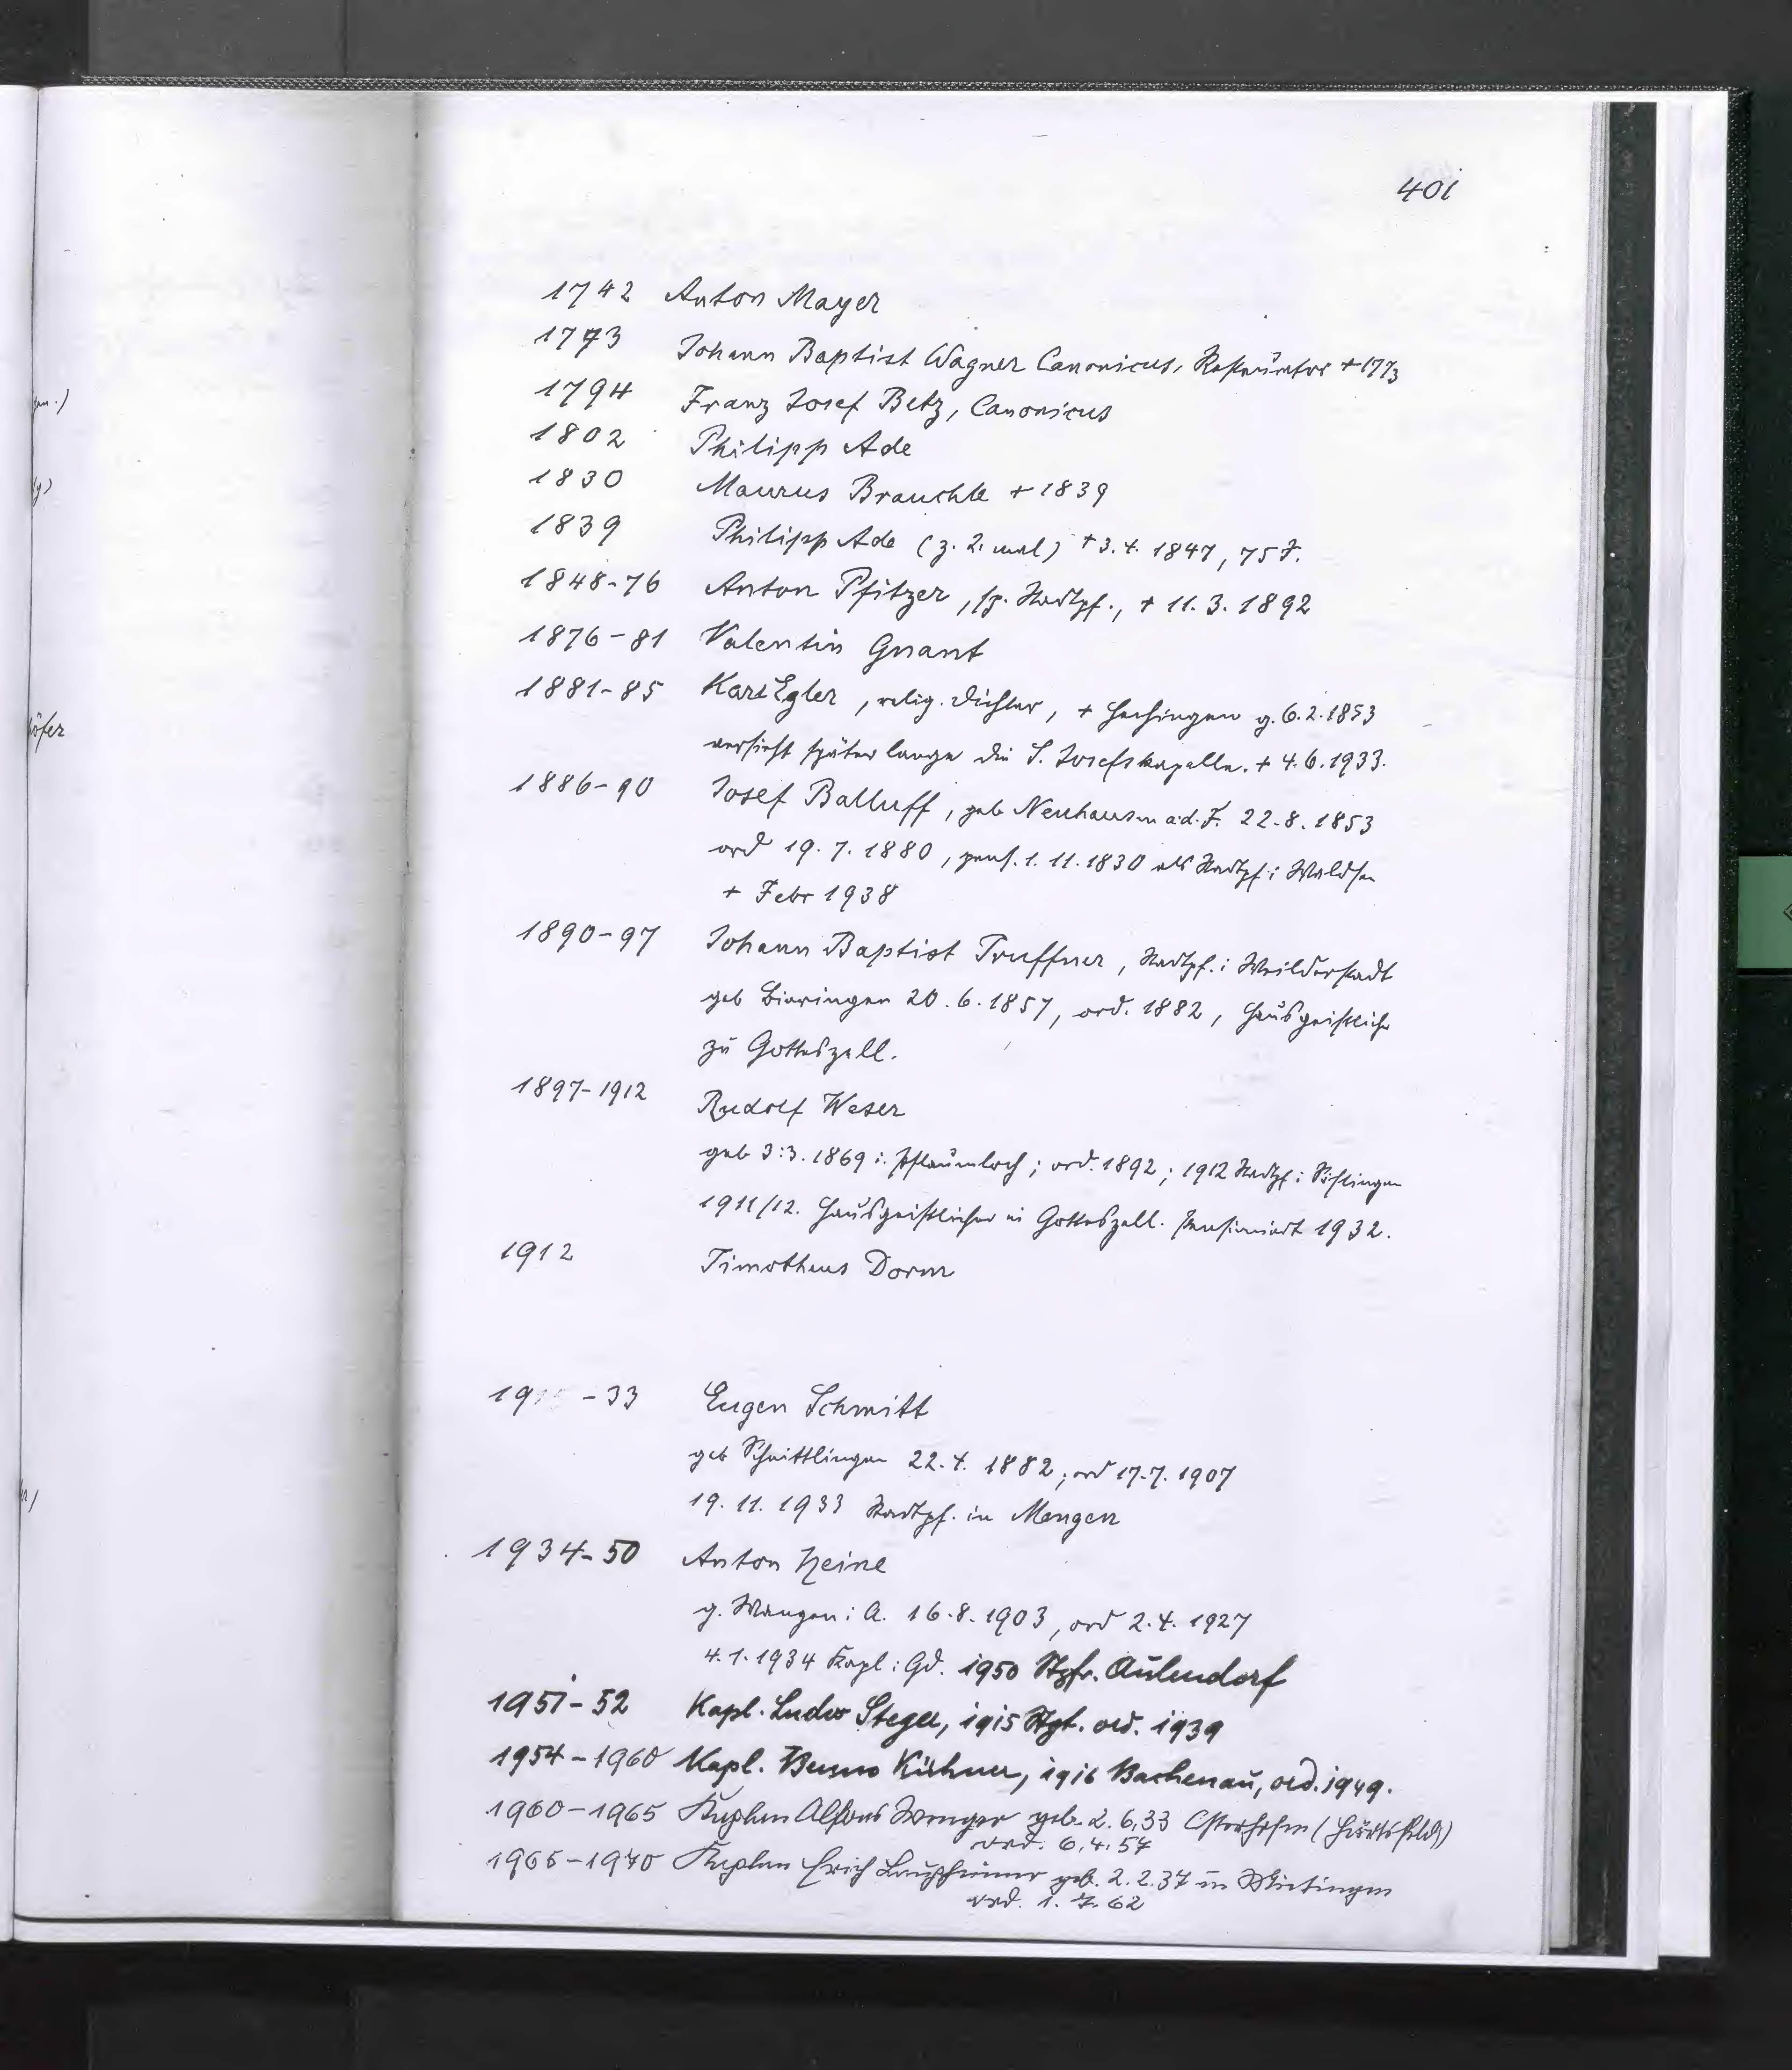 401
1742 Anton Mayer
1773 Johann Baptist Wagner Canonicus, + 1773
1794 Franz Josef Betz, Canonicus
1802 Philipp Ade
1830 Maurus Brauchle + 1839
1839 Philipp Ade (z. 2. mal) + 3.4. 1847, 75 J.
1848-76 Anton Pfitzer, sp. Stadtpf., + 11. 3. 1892
1876-81 Valentin Gnant
1881-85 Karl Egler, relig. Dichter, + Hechingen g. 6.2.1853
versieht später lange die S. Josefskapelle. + 4.6.1933.
1886-90 Josef Balluff, geb Neuhausen a.d.F. 22.8.1853
ord 19.7.1880, pens. 1.11.1830 als Stadtpf i Waldsee
+ Febr 1938
1890-97 Johann Baptist Truffner, Stadtpf. i Weilderstadt
geb Bieringen 20.6.1857, ord. 1882, Hausgeistlicher
zu Gotteszell.
1897-1912 Rudolf Weser
geb 3.3.1869 i. Pflaumloch; ord. 1892; 1912 Stadtpf i Söflingen
1911/12. Hausgeistlicher in Gotteszell. Pensioniert 1932.
1912 Timotheus Dorm
19 -33 Eugen Schmitt
geb Schnittlingen 22.4. 1882; ord 17.7. 1907
19. 11. 1933 Stadtpf. in Mengen
1934-50 Anton Heine
g. Wangen i A. 16.8.1903, ord 2.4. 1927
4.1.1934 Kapl i Gd. 1950 Stpfr. Aulendorf
1951-52 Kapl. Ludw Steger, 1915 Stgt. ord. 1939
1954-1960 Kapl. Bruno Kühner, 1916 Bachenau, ord. 1949.
1960-1965 Kaplan Alfons Wenger geb. 2.6.33 Osterhofen (Härtsfeld)
ord. 6.4.57
1965-1970 Kaplan Erich Laupheimer geb. 2.2.37 in Mietingen
ord. 1.7.62